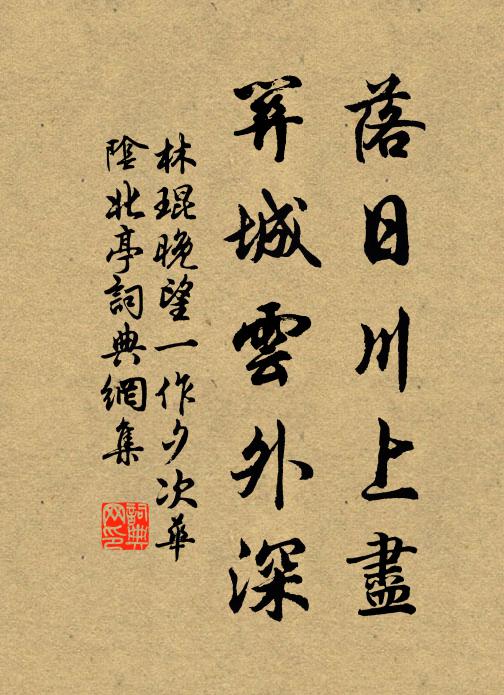 落日川上盡
關城雲外深
林琨晚望一作夕次華
陰北亭詞典網集
詞典
网印